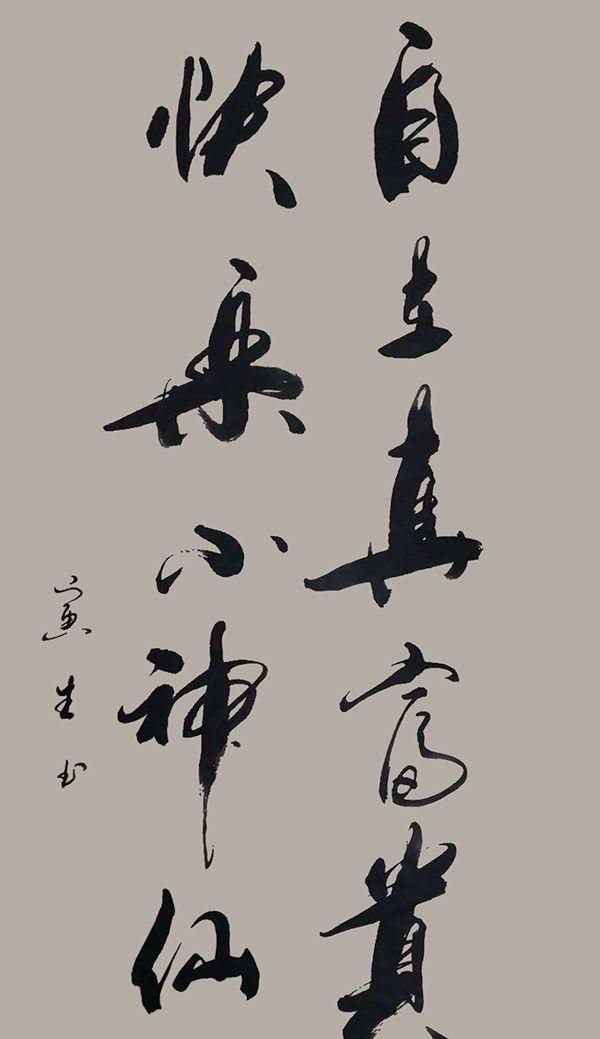 自在真富貴
快樂小神仙
寅生书